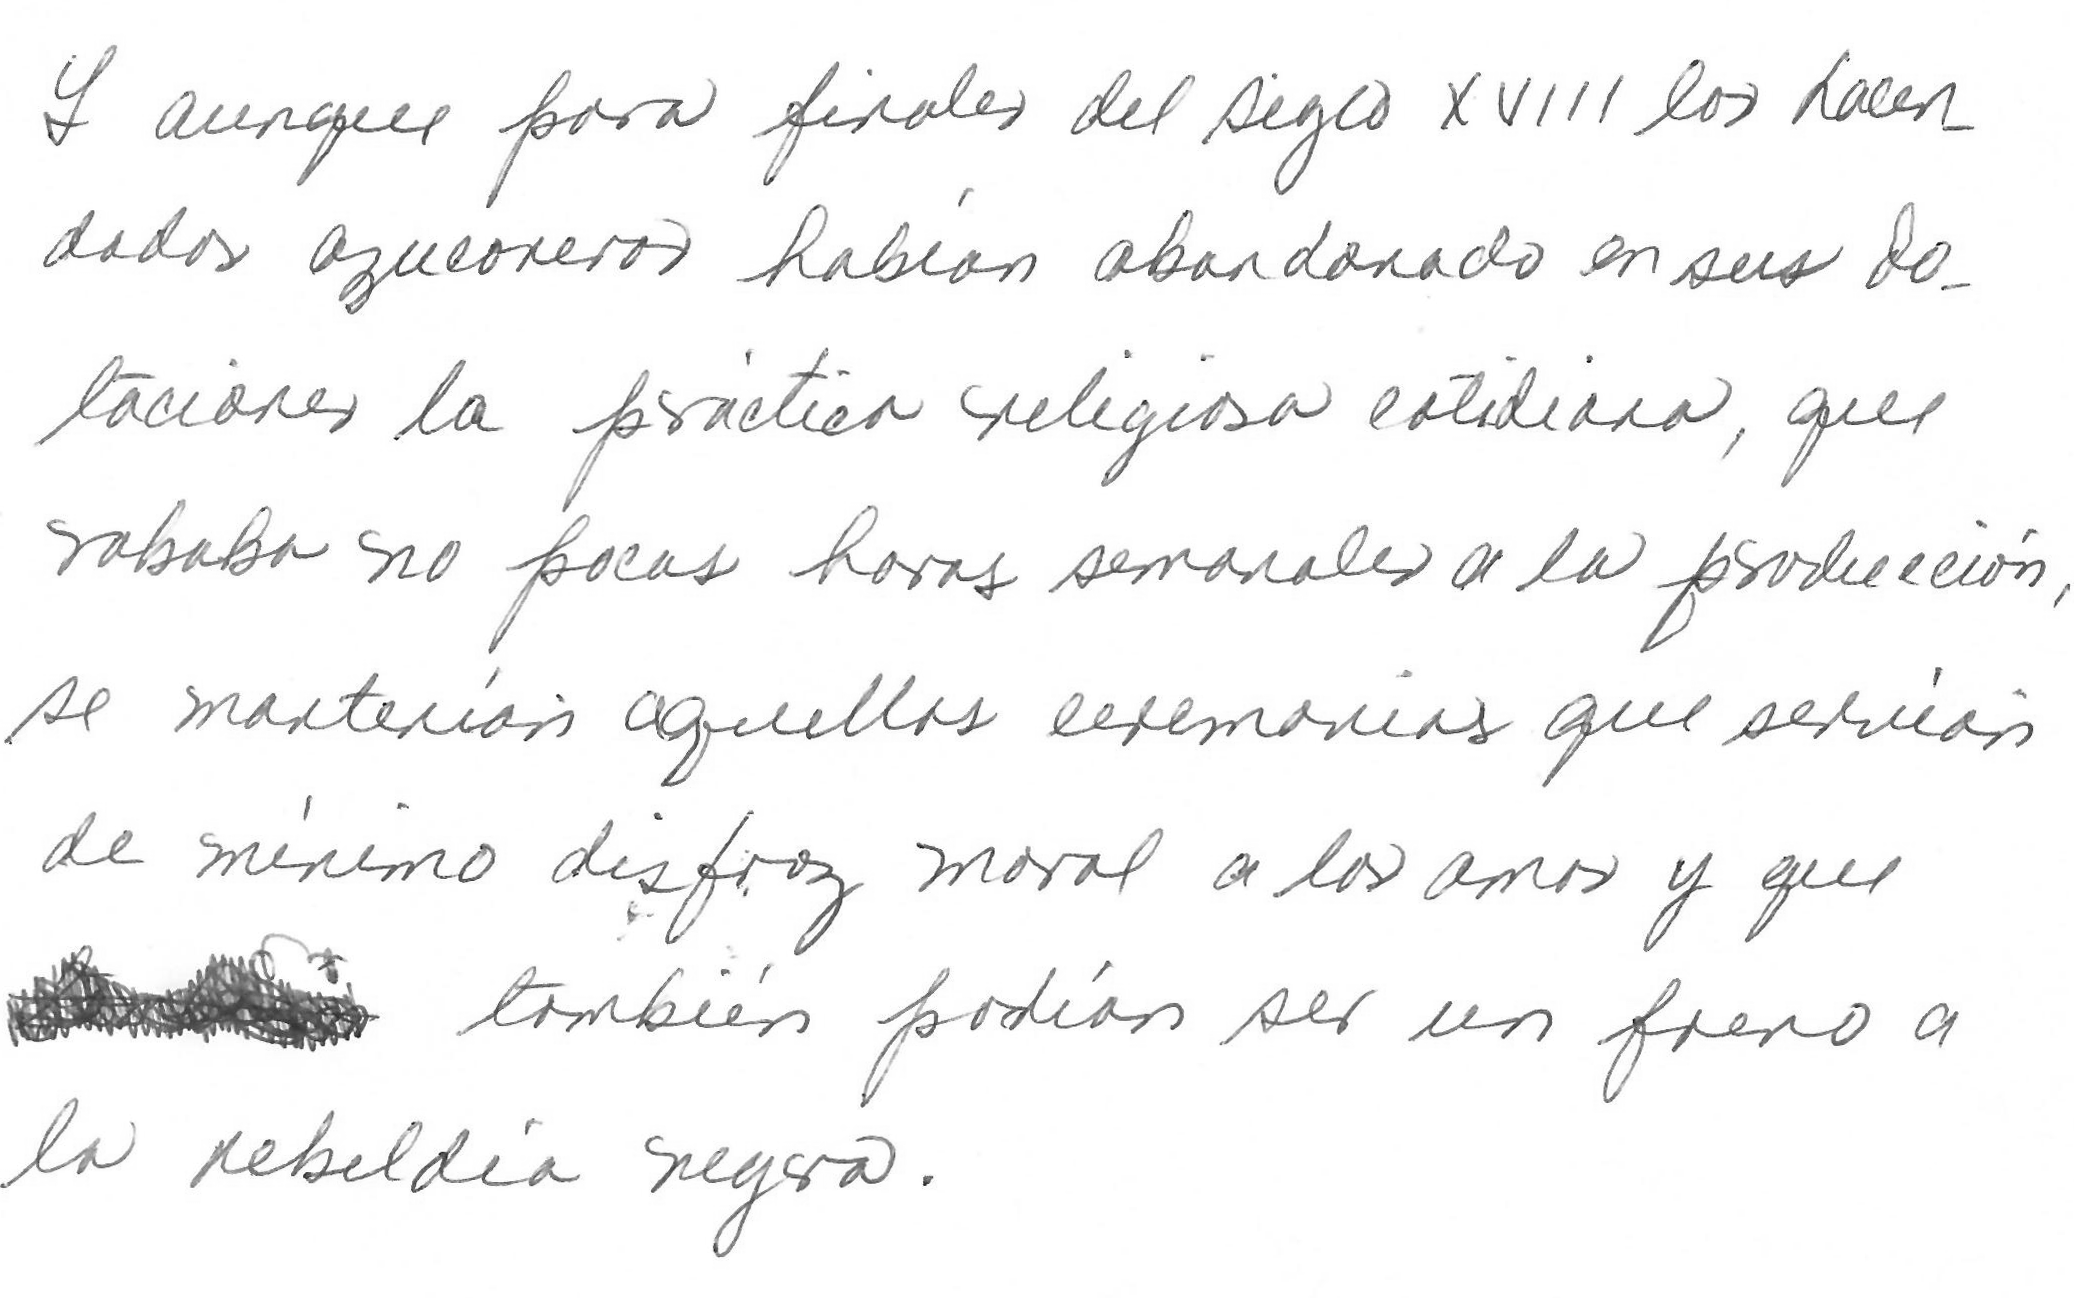 Y aunque para finales del siglo XVIII los hacen-
dados azucareros habían abandonado en sus do-
taciones la práctica religiosa cotidiana, que
robaba no pocas horas semanales a la producción,
se mantenían aquellas ceremonias que servían
de mínimo disfraz moral a los amos y que
también podían ser un freno a
la rebeldía negra.